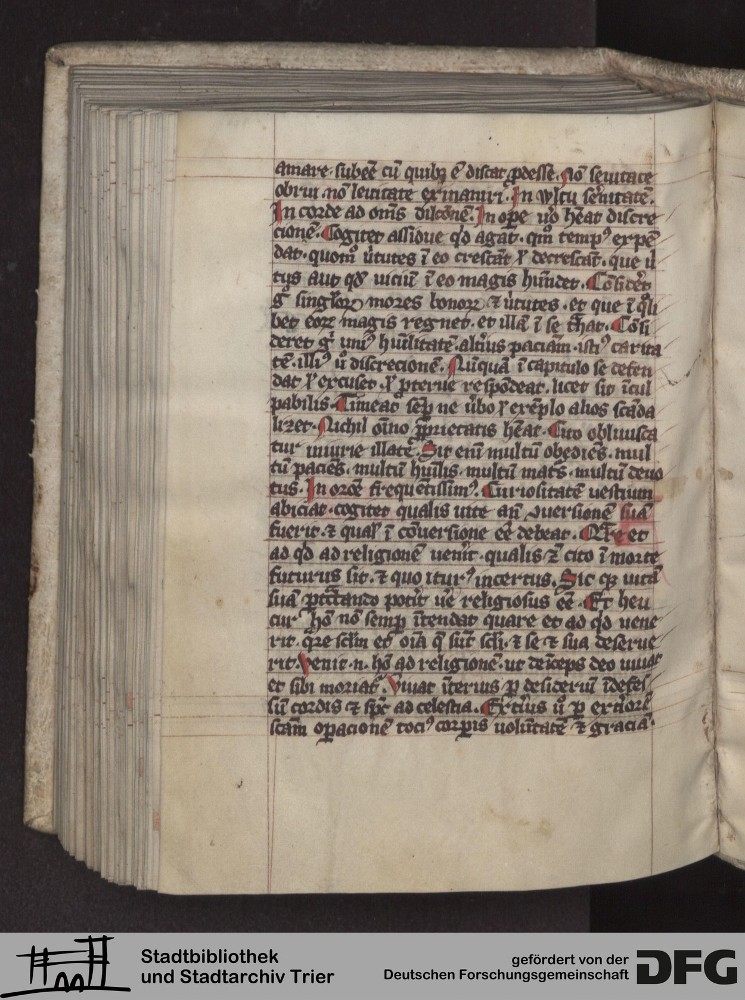 amare · subeē cū quibꝫ ē discat ꝓdesse. Nō seuitate
obrui · nō leuitate exinaniri. In vltu seritatē.
In corde ad oēs dilcōnē. In oꝑe ūo hēat discre
cionē. Cogitet assidue qd agat · qm̄ tempꝰ expē
dat · quom̄ ūtutes ī eo crescāt ł decrescāt · que
tijs aut qd uiciū ī eo magis hūndet. Cōsiderꝫ
gͦ singloꝝ mores bonoꝝ ⁊ ūtutes · et que ī qͣli
bet eoꝝ magis regnet · et illā ī se thāt. Cōsi
deret gͦ uniꝰ hūilitatē · altīus paciam · istiꝰ carita
tē · illiꝰ ū discrecionē. Nūquā ī capitulo se defen
dat ł excuset · ł ꝓterue respōdeat · licet sit īcul
pabilis. Timeat semꝑ ne ūbo ł exēplo alios scāda
lizet. Nichil oīno ꝓprietatis hēat. Cito obliuisca
tur iniurie illate. Sit enī multū obediēs · mul
tū paciēs · multū hūilis · multū matꝰ · multū deuo
tus. In orōe frequētissimꝰ. Curiositatē uestium
abiciat · cogitet qualis uite an̄ ꝯuersionē suā
fuerit · ⁊ qualꝰ ī cōuersione eē debeat. Qͣre et
ad qd ad religionē venīt · qualis ⁊ cito ī morte
futurus sit · ⁊ quo iturꝰ incertus. Sic qꝫ uitā
suā ptͣctando potīt ūe religiosus eē. Et heu
cur hō nō semꝑ ītendat quare et ad qd uene
rit · qͣre sclm et oīa q̄ sūt scłi · ⁊ se ⁊ sua deserue
rit. Venit · n · hō ad religionē · ut deīceps deo uiuat
et sibi moriatꝛ. Viuat īterius ꝑ desideriū īdefes
sū cordis ⁊ spc ad celestia. Extīus ū ꝑ exerciorē
scām oꝑacionē tociꝰ corꝑis uolūtatē ⁊ graciā ·
Stadtbibliothek
und Stadtarchiv Trier
gefördert von der
Deutschen Forschungsgemeinschaft
DFG